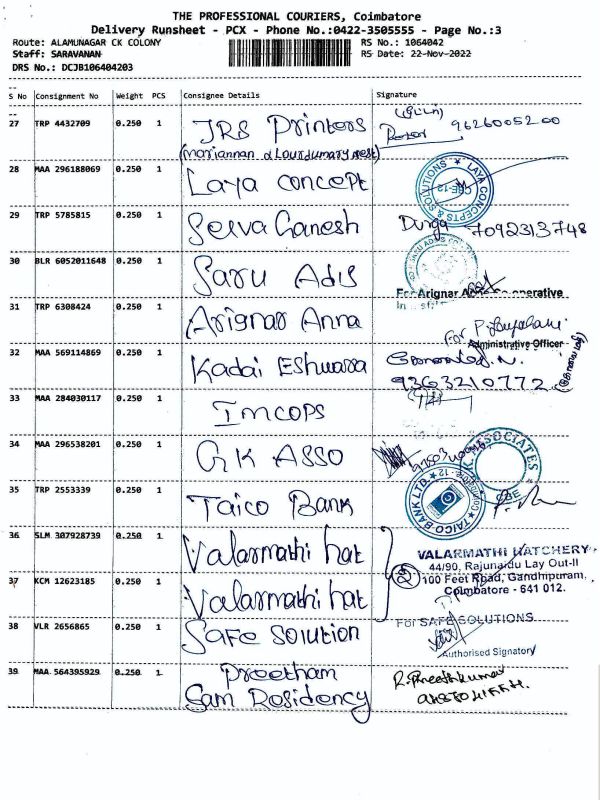 THE PROFESSIONAL COURIERS, Coimbatore
Delivery Runsheet - PCX - Phone No.:0422-3505555 - Page No.:3
Route: ALAMUNAGAR CK COLONY RS No.: 1064042
Staff: SARAVANAN RS Date: 22-Nov-2022
DRS No.: DCJB106404203
S No Consignment No Weight PCS Consignee Details Signature
27 TRP 4432709 0.250 1 JRS Printers 9626005200
(Mariannan & Lourdumary west)
28 MAA 296188069 0.250 1 Laya concept LAYA CONCEPTS & SOLUTIONS CBE-12
29 TRP 5785815 0.250 1 Selva Ganesh Durga 7092313748
30 BLR 6052011648 0.250 1 Saru Ads
For Arignar
31 TRP 6308424 0.250 1 Arignar Anna For
Administrative Officer
32 MAA 569114869 0.250 1 Kadai Eshwara
9363210772
33 MAA 284030117 0.250 1 IMCOPS
34 MAA 296538201 0.250 1 GK ASSO
35 TRP 2553339 0.250 1 Taico Bank TAICO BANK LTD.
36 SLM 307928739 0.250 1 Valarmathi hat VALARMATHI HATCHERY
44/90, Rajunaidu Lay Out-II
37 KCM 12623185 0.250 1 Valarmathi hat 2 100 Feet Road, Gandhipuram,
Coimbatore - 641 012.
38 VLR 2656865 0.250 1 Safe Solution For SAFE SOLUTIONS
Authorised Signatory
39 MAA 564395929 0.250 1 Preetham
Sam Residency